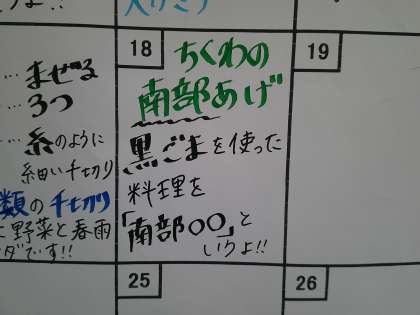 … まぜる
… 3つ
… 糸のように
細い千切り
類の千切り
と野菜と春雨
ダです!!
18
ちくわの
南部あげ
黒ごまを使った
料理を
「南部○○」と
いうよ!!
19
25
26